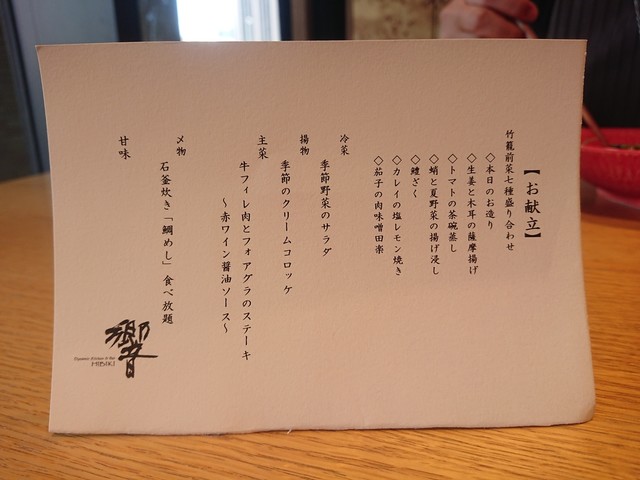 【お献立】
竹籠前菜七種盛り合わせ
◇本日のお造り
◇生姜と木耳の薩摩揚げ
◇トマトの茶碗蒸し
◇蛸と夏野菜の揚げ浸し
◇鱧ざく
◇カレイの塩レモン焼き
◇茄子の肉味噌田楽
冷菜
季節野菜のサラダ
揚物
季節のクリームコロッケ
主菜
牛フィレ肉とフォアグラのステーキ
～赤ワイン醤油ソース～
〆物
石釜炊き「鯛めし」食べ放題
甘味
響
HIBIKI